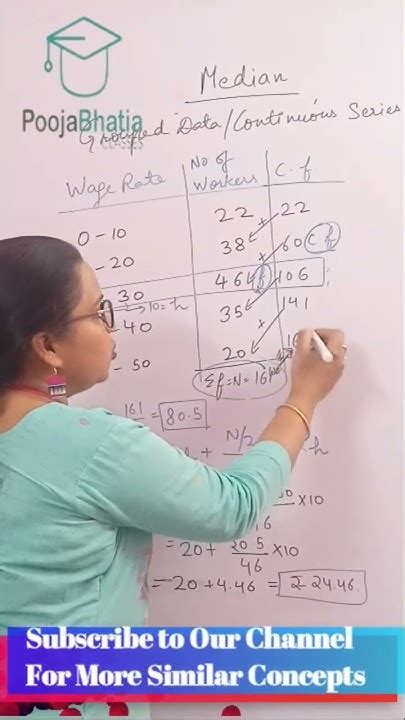 Median
PoojaBhatia
CLASSES
Grouped Data/Continuous Series
Wage Rate No of Workers C.f
0-10 22 22
-20 38 60 cf
30 46 f 106
10=h
-40 35 141
-50 20
Σf=N=161
161 = 80.5
+ N/2 h
×10
=20+ 20.5/46 ×10
=20+4.46 = 24.46
Subscribe to Our Channel
For More Similar Concepts